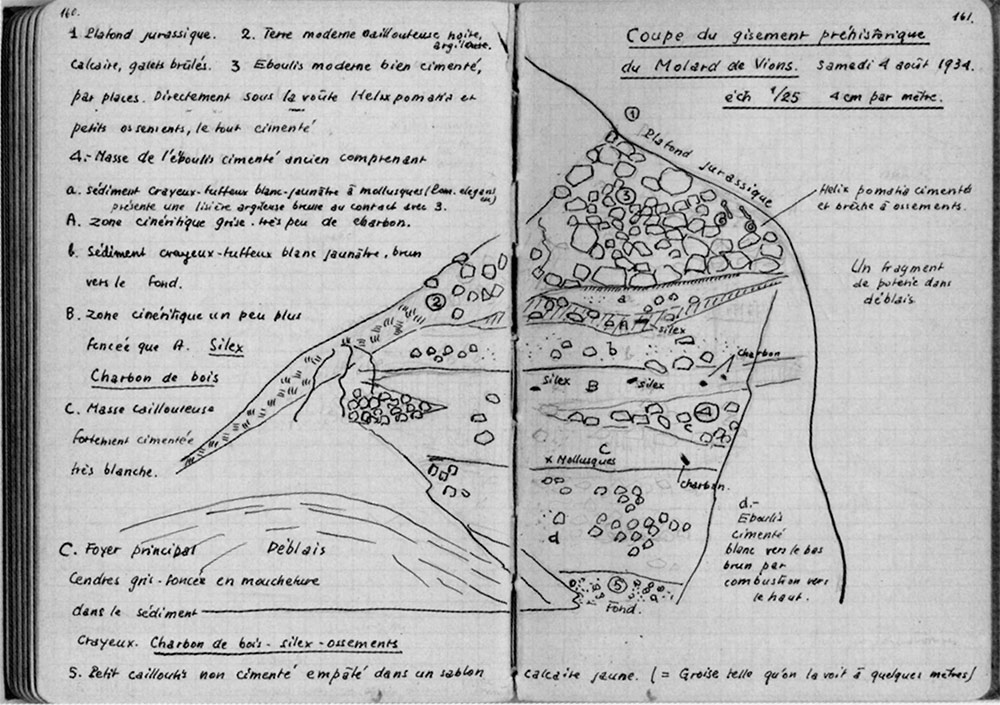 160.
1 Plafond jurassique. 2. Terre moderne caillouteuse noire,
argileuse.
calcaire, galets brûlés. 3 Eboulis moderne bien cimenté,
par places. Directement sous la voûte Helix pomatia et
petits ossements, le tout cimenté
4.- Masse de l'éboulis cimenté ancien comprenant
a. sédiment crayeux-tuffeux blanc-jaunâtre à mollusques (Pom. elegans
présente une lisière argileuse brune au contact avec 3.
A. zone cinéritique grise très peu de charbon.
b. Sédiment crayeux-tuffeux blanc jaunâtre, brun
vers le fond.
B. zone cinéritique un peu plus
foncée que A. Silex
Charbon de bois
c. Masse caillouteuse
fortement cimentée
très blanche.
C. Foyer principal
Cendres gris-foncée en moucheture
dans le sédiment
crayeux. Charbon de bois - silex - ossements
5. Petit cailloutis non cimenté empâté dans un sablon calcaire jaune. (= Groise telle qu'on la voit à quelques mètres)
2
Déblais
161.
Coupe du gisement préhistorique
du Molard de Vions. Samedi 4 août 1934.
éch 1/25 4 cm par mètre.
1
Plafond jurassique
3
Helix pomatia cimentés
et brèche à ossements.
Un fragment
de poterie dans
déblais
a
A
silex
b
charbon
silex
B
silex
4
c
C
x Mollusques
charbon.
d
d.-
Eboulis
cimenté
blanc vers le bas
brun par
combustion vers
le haut.
5
Fond.